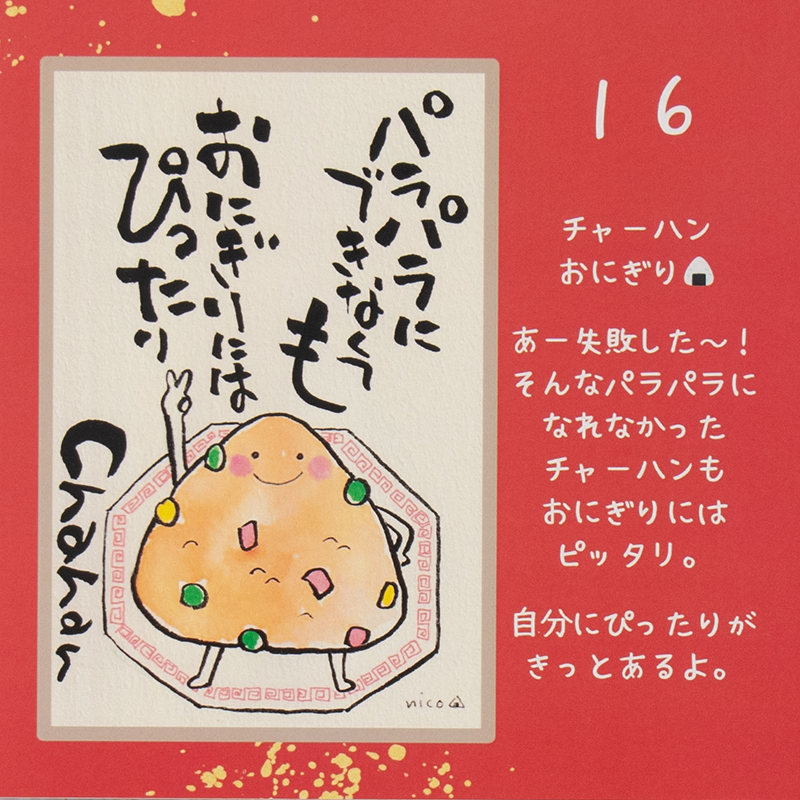 パラパラに
できなくって
も
おにぎりには
ぴったり
Chahan
nico
16
チャーハン
おにぎり🍙
あー失敗した〜！
そんなパラパラに
なれなかった
チャーハンも
おにぎりには
ピッタリ。
自分にぴったりが
きっとあるよ。